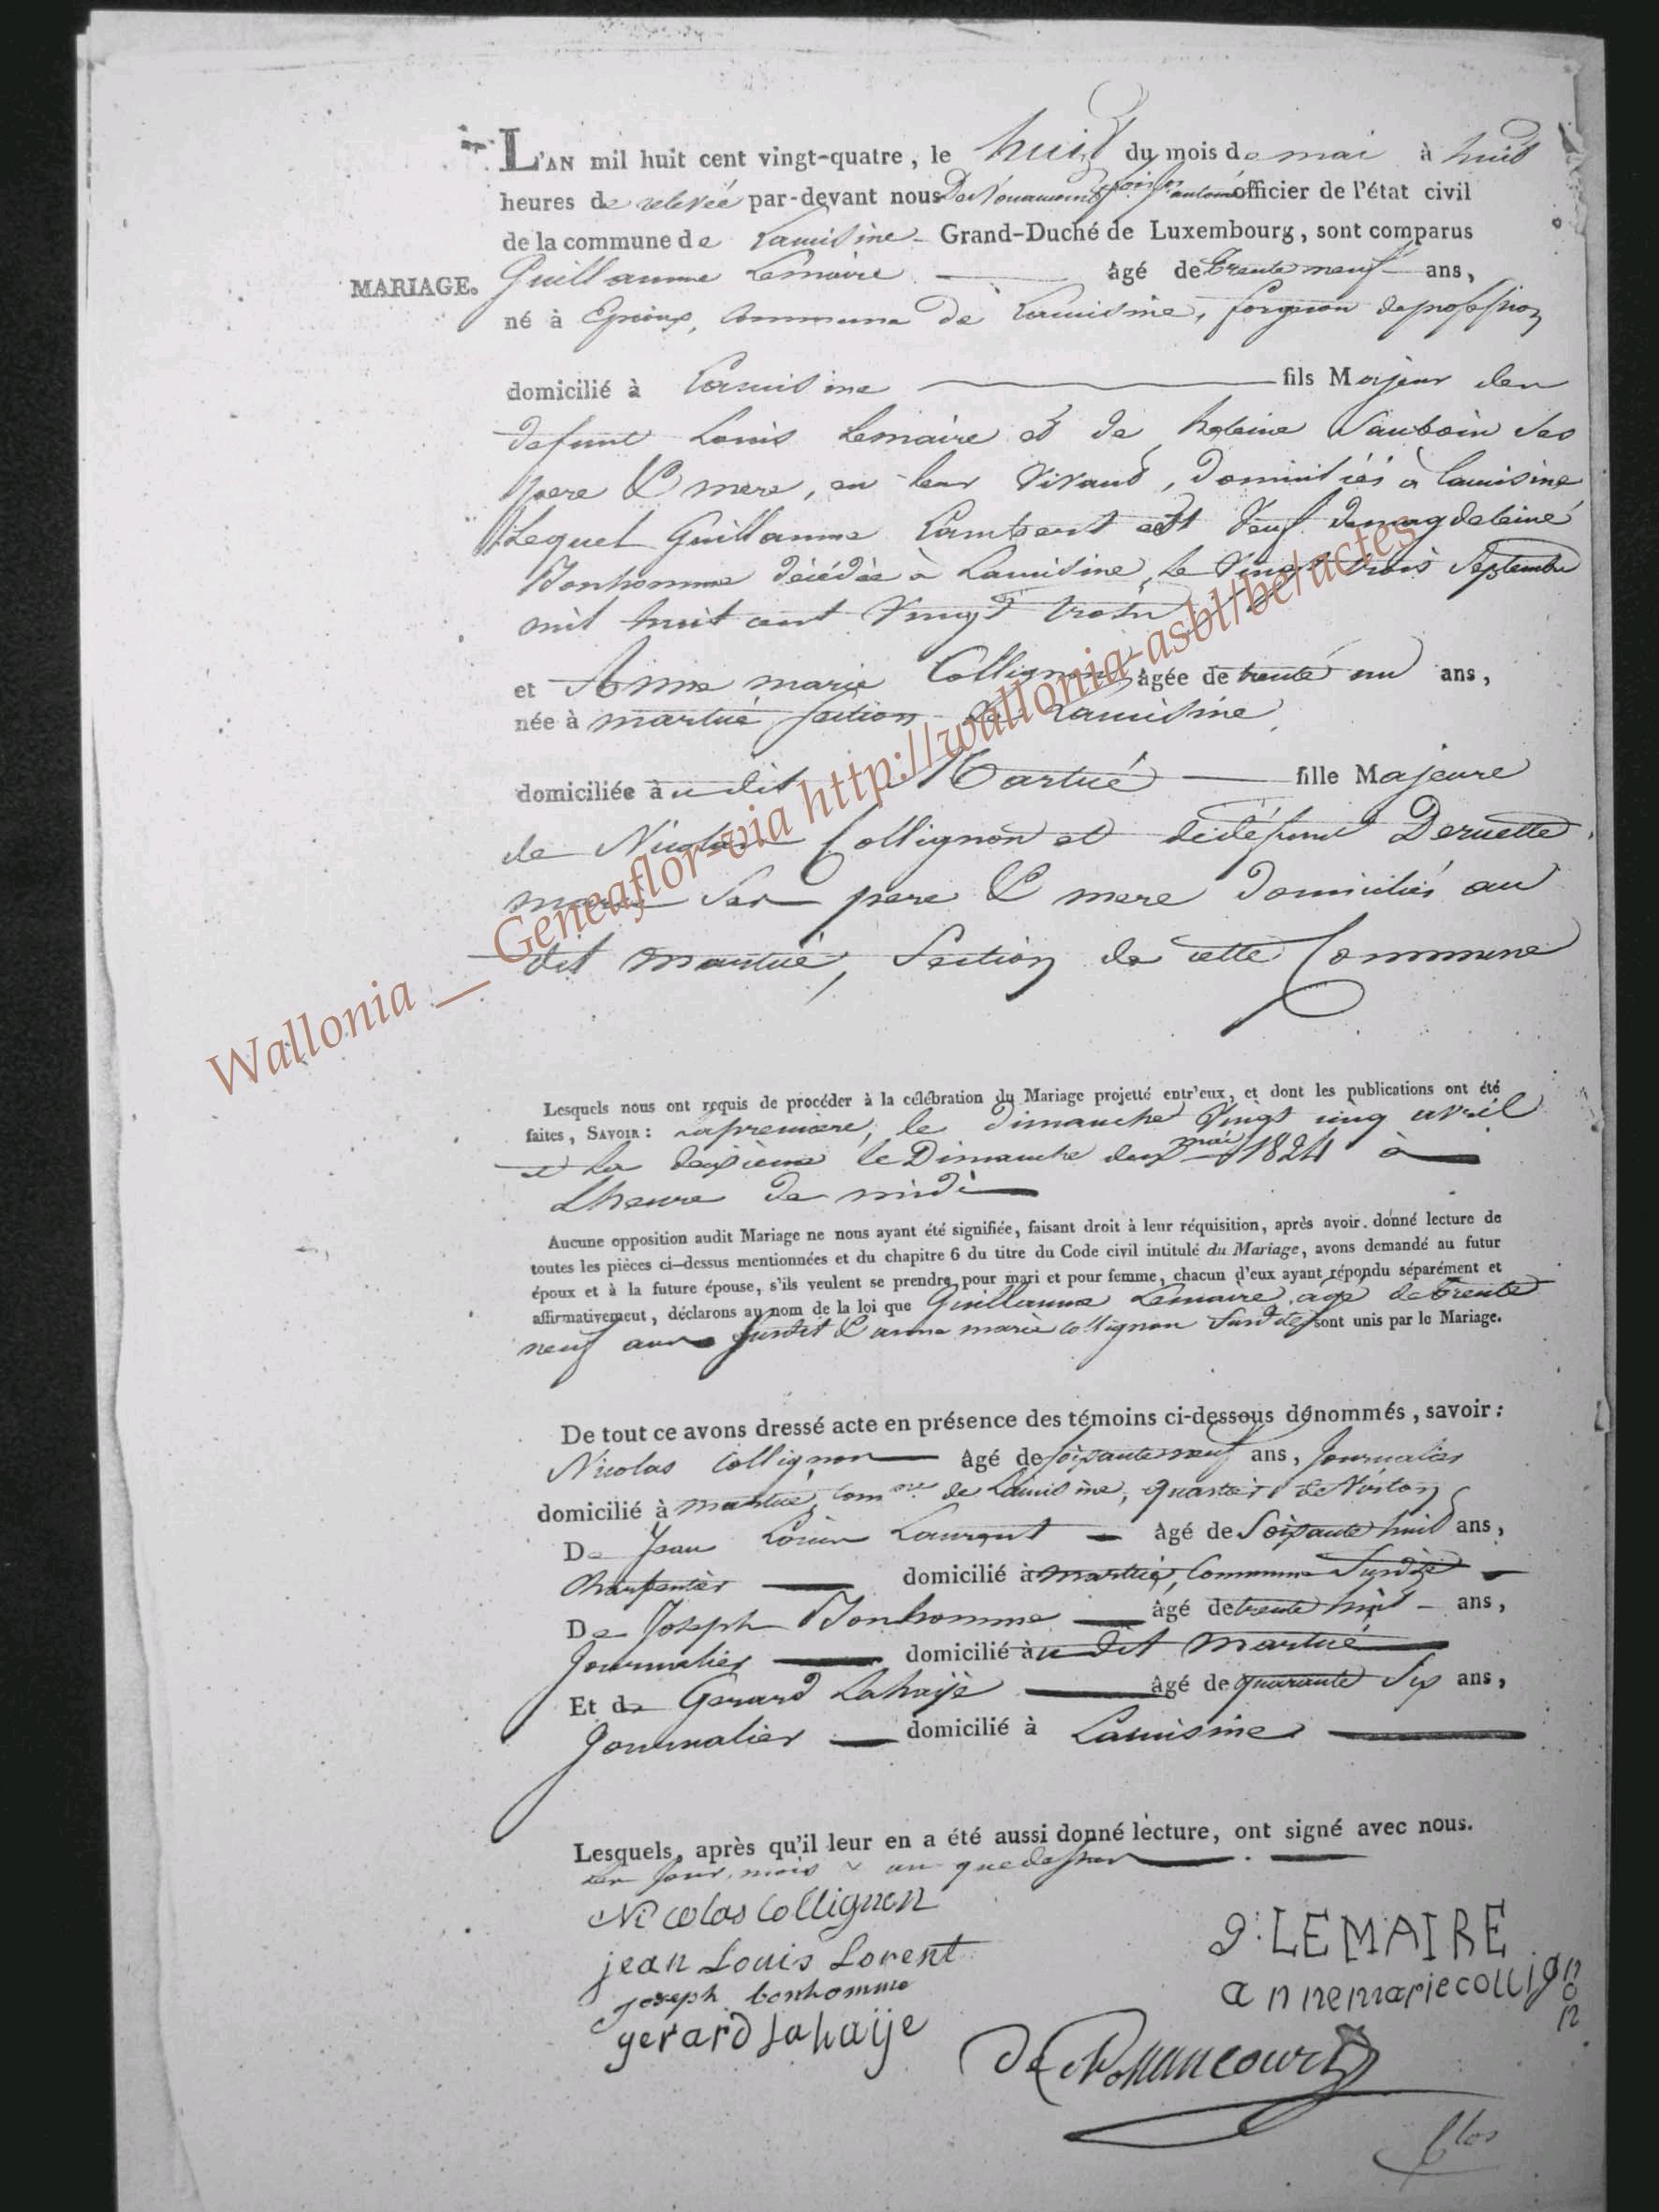 L'AN mil huit cent vingt-quatre, le huit du mois de mai à huit
heures de relevée par-devant nous officier de l'état civil
de la commune de Lacuisine Grand-Duché de Luxembourg, sont comparus
MARIAGE.
Guillaume Lemaire âgé de trente neuf ans,
né à Epioux, Commune de Lacuisine, forgeron de profession
domicilié à Lacuisine fils Majeur den
defunt Louis Lemaire et de heleine Sauboin ses
pere & mere, en leur vivant, domiciliés à lacuisine
Lequel Guillaume Lambert est veuf de magdeleine
Bonhomme décédée à Lacuisine, le vingt trois Septembre
mil huit cent vingt trois
et Anne marie Collignon âgée de trente un ans,
née à martué section de Lacuisine
domiciliée àu dit Martué fille Majeure
de Nicolas Collignon et de défunt Deruette
marie ses pere & mere domiciliés au
dit martué, Section de cette Commune
Lesquels nous ont requis de procéder à la célébration du Mariage projetté entr'eux, et dont les publications ont été
faites, SAVOIR : la premiere, le dimanche vingt cinq avril
et la deuxieme le Dimanche deux mai 1824 à
Lheure de midi
Aucune opposition audit Mariage ne nous ayant été signifiée, faisant droit à leur réquisition, après avoir donné lecture de
toutes les pièces ci-dessus mentionnées et du chapitre 6 du titre du Code civil intitulé du Mariage, avons demandé au futur
époux et à la future épouse, s'ils veulent se prendre pour mari et pour femme, chacun d'eux ayant répondu séparément et
affirmativement, déclarons au nom de la loi que Guillaume Lemaire agé de trente
neuf ans susdit & anne marie collignon Susdite sont unis par le Mariage.
De tout ce avons dressé acte en présence des témoins ci-dessous dénommés, savoir :
Nicolas Collignon âgé de soixante neuf ans, Journalier
domicilié à martué, Comne de Lacuisine, quartier de Virton
De Jean Louis Laurent âgé de Soixante huit ans,
Charpentier domicilié à martué, Commune Susdite
De Joseph Bonhomme âgé de trente huit ans,
Journalier domicilié àu dit martué
Et de Gerard Lahaije âgé de quarante Six ans,
Journalier domicilié à Lacuisine
Lesquels, après qu'il leur en a été aussi donné lecture, ont signé avec nous.
Les jour, mois & an que dessus
Nicolas Collignon
jean Louis Lorent
joseph bonhomme
gerard Lahaije
g: LEMAIRE
annemariecollignon
de Nonancourt
Wallonia __ Geneaflor-via http://wallonia-asbl/be/actes